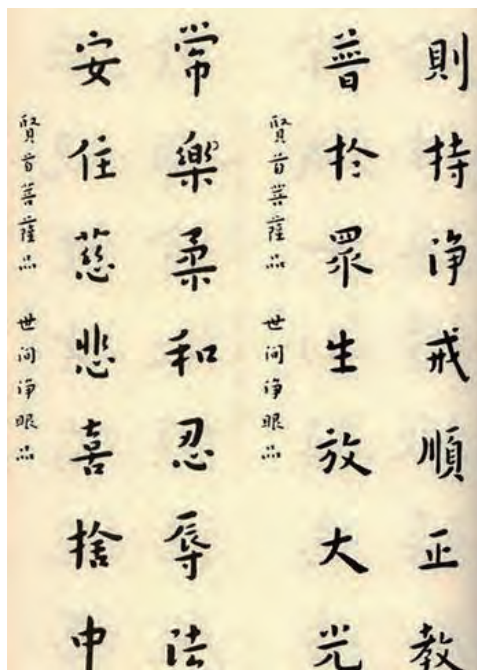 則持淨戒順正教
普於眾生放大光
賢首菩薩品 世间淨眼品
常樂柔和忍辱法
安住慈悲喜捨中
賢首菩薩品 世间淨眼品